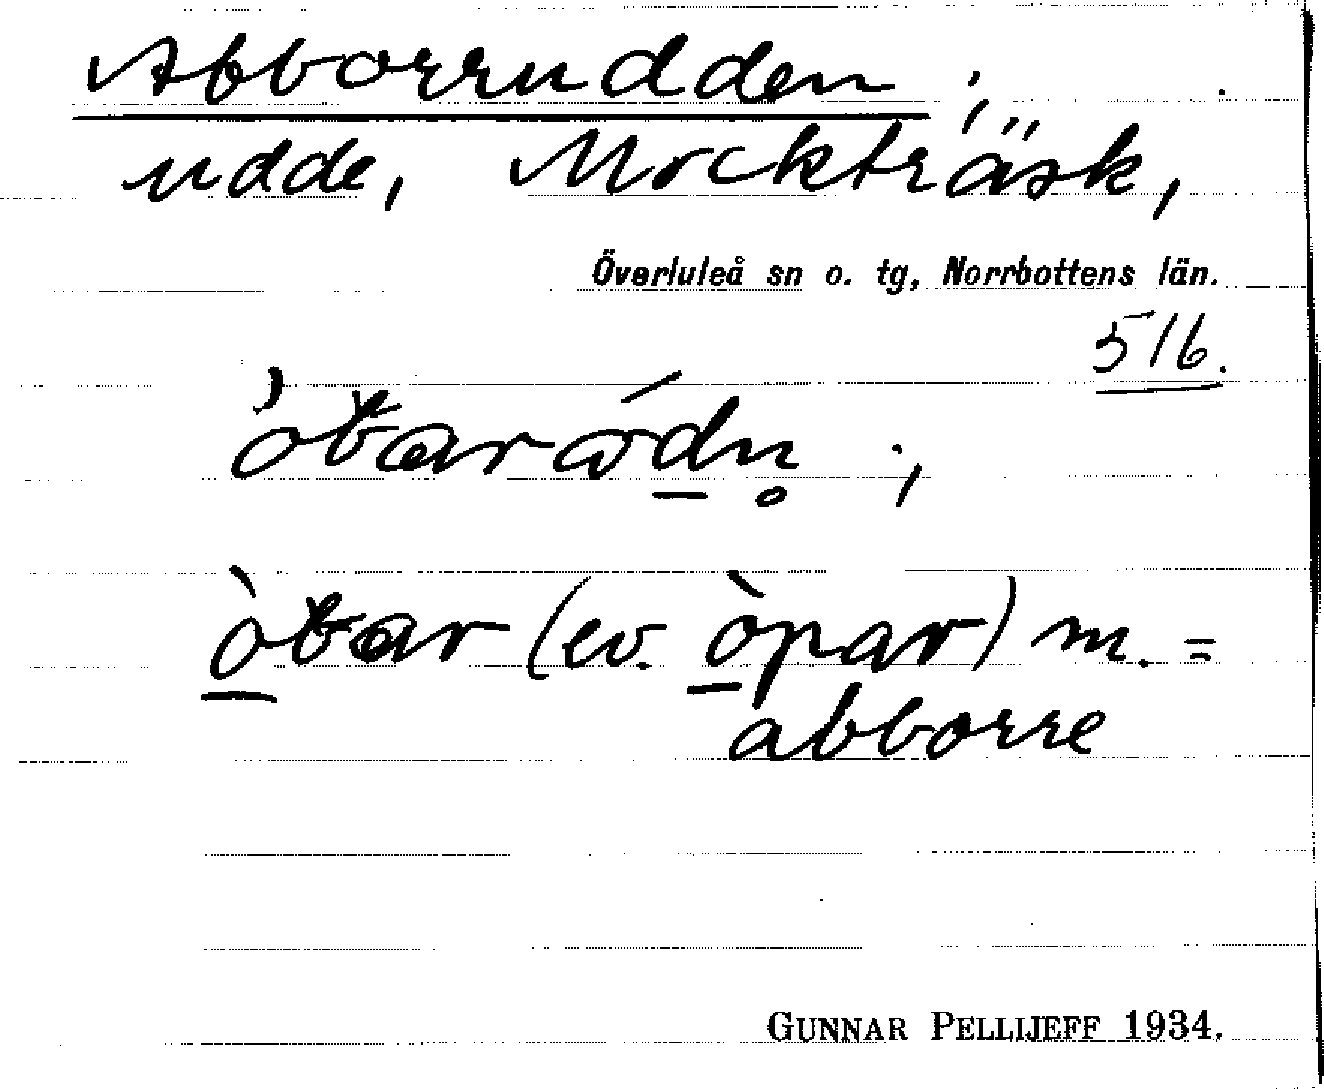 Abborrudden ;
udde, Mockträsk,
Överluleå sn o. tg, Norrbottens län.
516.
(ev. òpar) m. =
abborre
GUNNAR PELLIJEFF 1934.